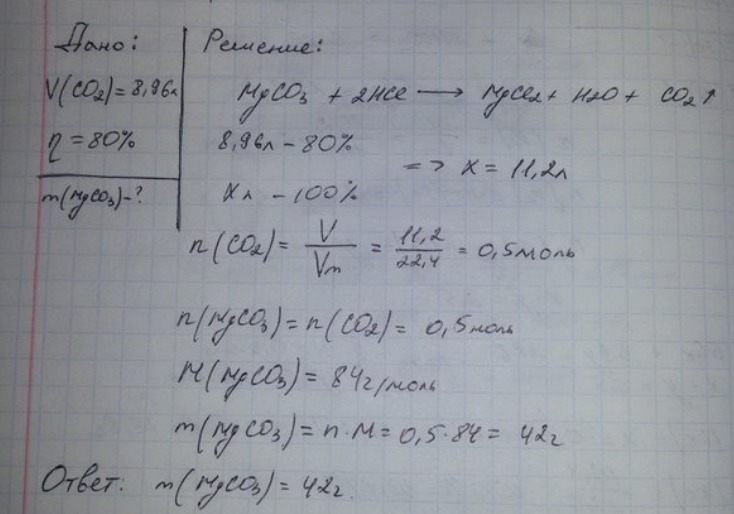 Дано:
V(CO₂)=8,96л
η = 80%
m(MgCO₃)-?
Решение:
MgCO₃ + 2HCl → MgCl₂ + H₂O + CO₂↑
8,96л - 80%
=> X = 11,2л
Xл - 100%
n(CO₂) = V/Vm = 11,2/22,4 = 0,5моль
n(MgCO₃) = n(CO₂) = 0,5моль
M(MgCO₃) = 84г/моль
m(MgCO₃) = n·M = 0,5·84 = 42г
Ответ: m(MgCO₃) = 42г.